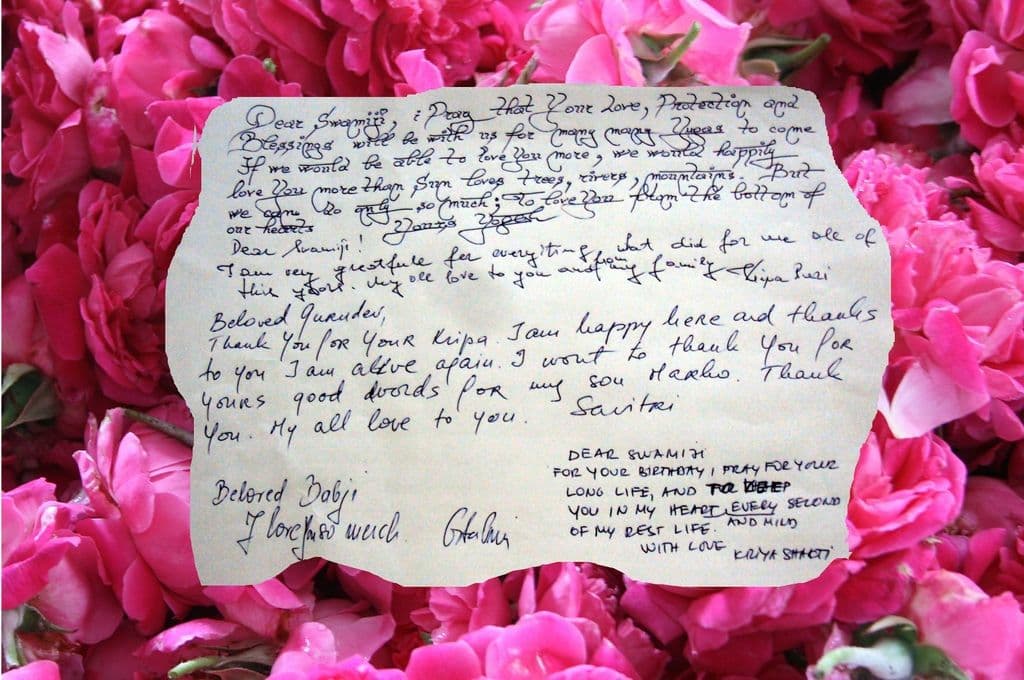 Dear Swamiji, i Pray that Your Love, Protection and
Blessings will be with us for many many Yugas to come
If we would be able to love You more, we would happily
love You more than Sun loves trees, rivers, mountains. But
we can do only so much; to love You from the bottom of
our hearts Yours
Dear Swamiji!
I am very greatfull for everything what did for me all of
this years. My all love to you from and my family Kripa Puri
Beloved Gurudev,
Thank You for Your Kripa. I am happy here and thanks
to you I am alive again. I wont to thank You for
yours good words for my son Marko. Thank
You. My all love to you. Savitri
Beloved Babji
I love you so much.
DEAR SWAMIJI
FOR YOUR BIRTHDAY I PRAY FOR YOUR
LONG LIFE, AND TO KEEP
YOU IN MY HEART EVERY SECOND
OF MY REST LIFE. AND MIND
WITH LOVE KRIYA SHAKTI